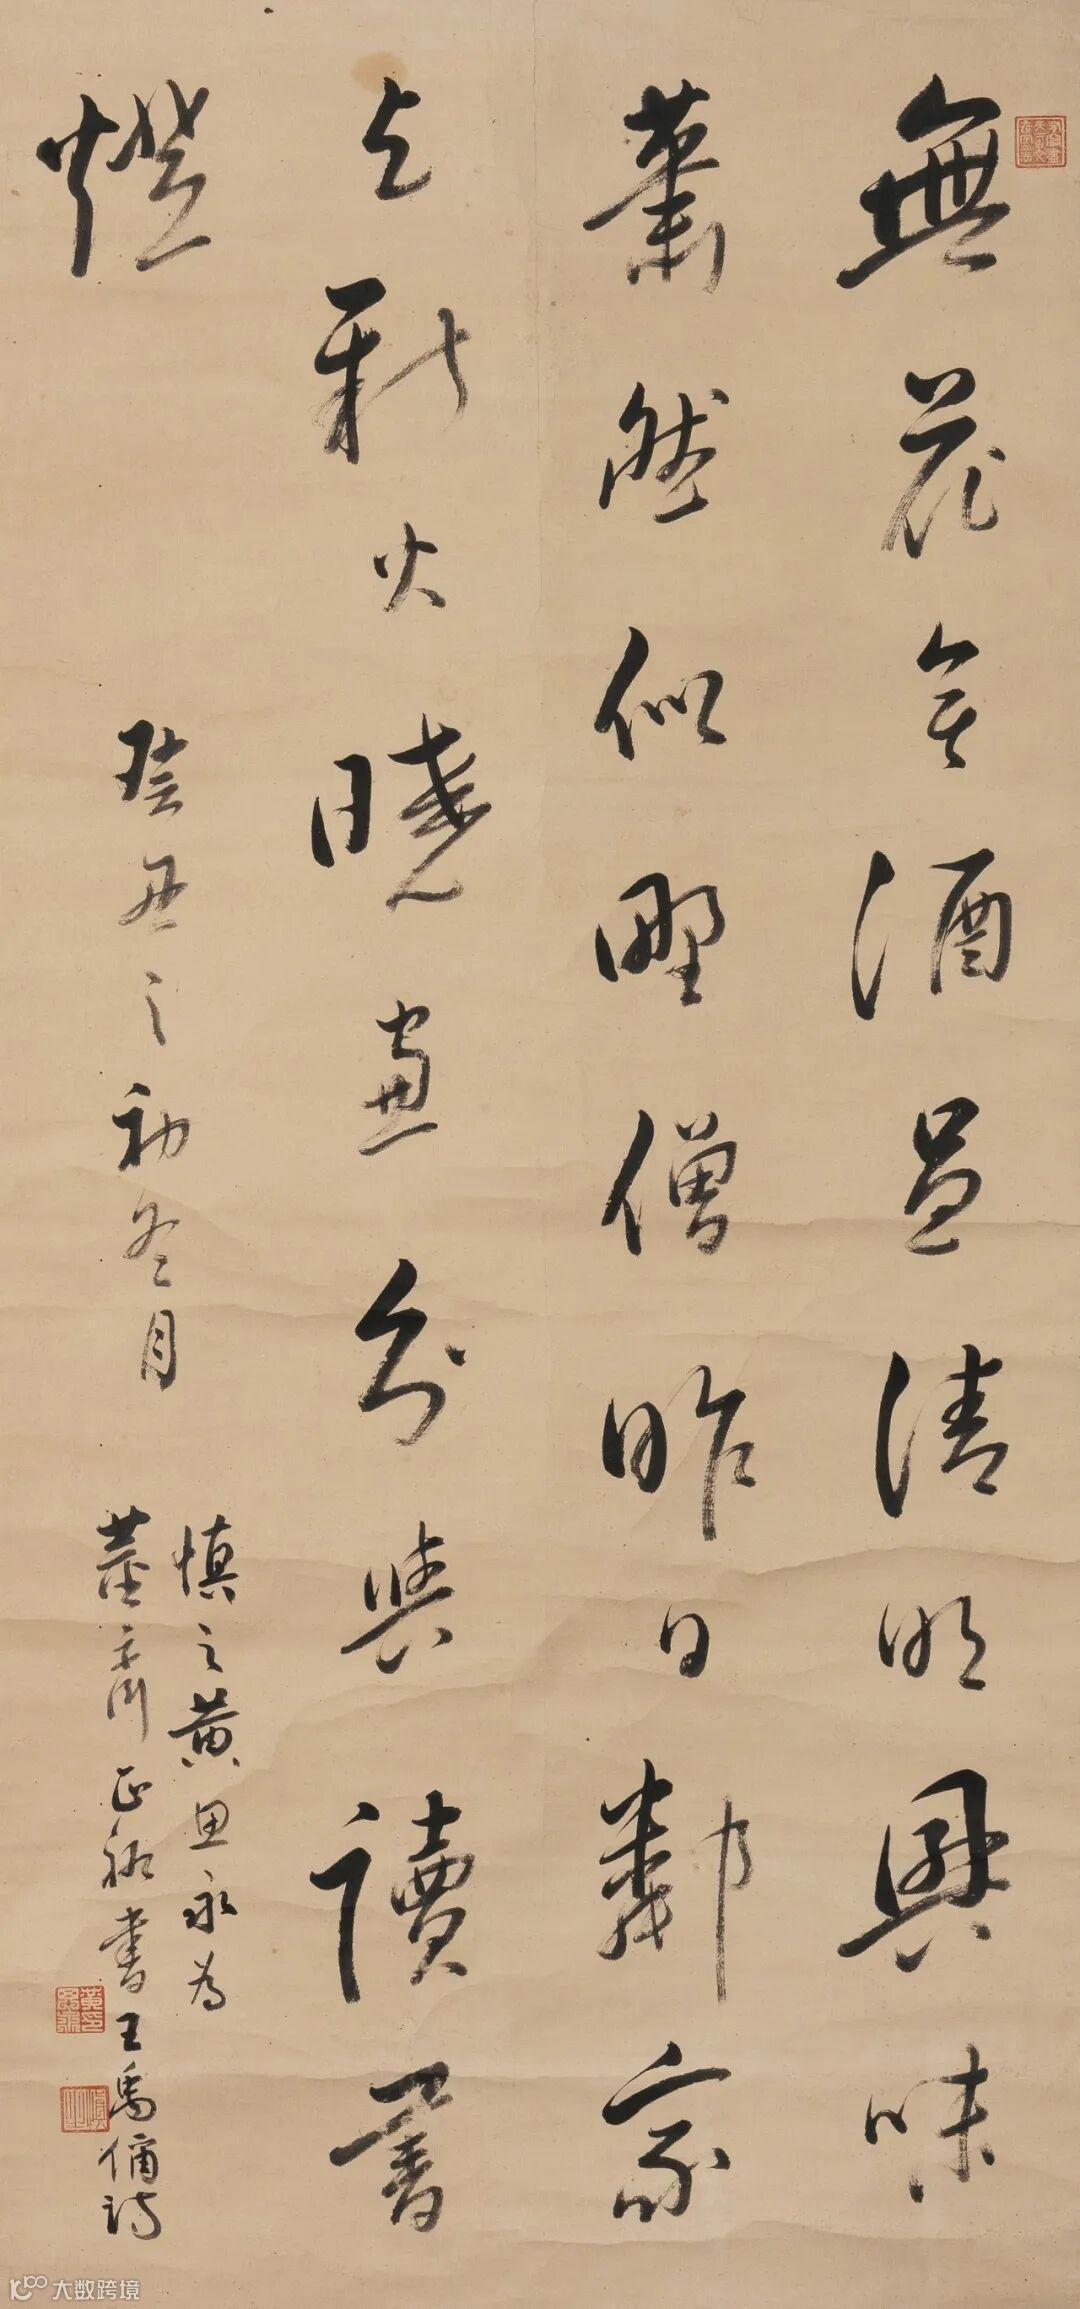 無花無酒過清明興味
蕭然似野僧昨日鄰家
乞新火曉窗分與讀書
燈
癸丑之初冬月
慎之黃思永為
齋正書王禹偁詩
大数跨境